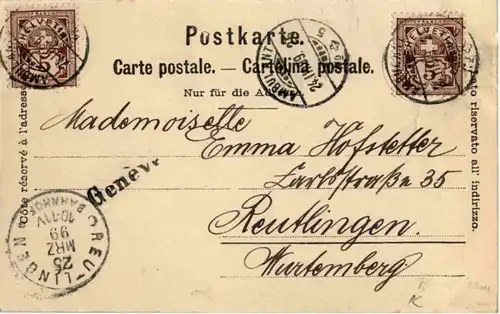 Postkarte.
Carte postale. — Cartolina postale.
Nur für die Adresse.
Côté réservé à l'adresse.
Lato riservato all' indirizzo.
Mademoiselle
Emma Hofstetter
Karlstraße 35
Reutlingen
Wurtemberg
Genève
REUTLINGEN
BAHNHOF
10-11V
25
MRZ
99
HELVETIA
5
AMBULANT
24
99
HELVETIA
5
K